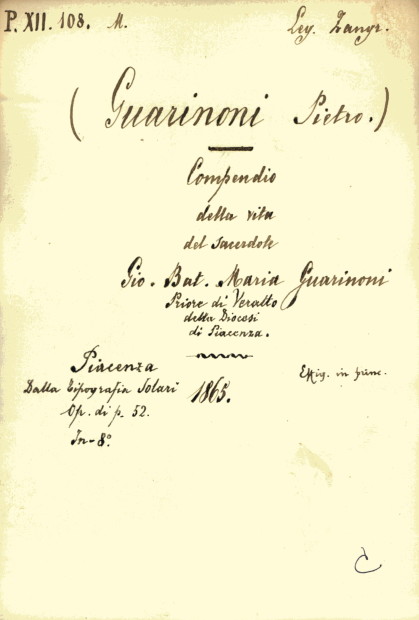 P. XII. 108. M.
Leg. Zangr.
(Guarinoni Pietro.)
Compendio
della vita
del Sacerdote
Gio. Bat. Maria Guarinoni
Priore di Veratto
della Diocesi
di Piacenza.
Piacenza
Dalla tipografia Solari
1865.
Effig. in princ.
Op. di p. 52.
In-8°
C